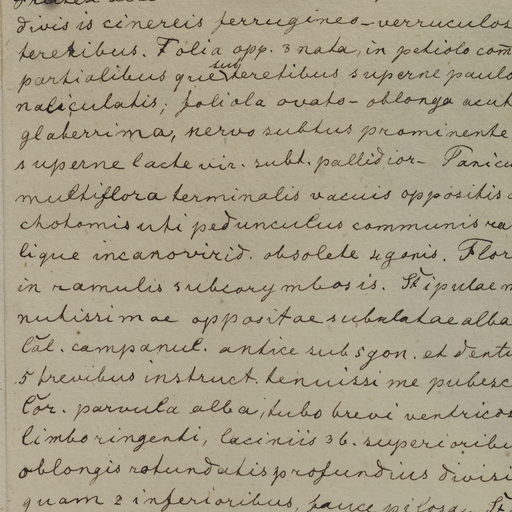 divis is cinereis ferrugineo-verruculos
teretibus. Folia opp. 3 nata, in petiolo com
partialibus que subteretibus superne paulo
naliculatis; foliola ovato-oblonga acut
glaberrima, nervo subtus prominente
superne laete vir. subt. pallidior- Panicu
multiflora terminalis vacuis oppositis
chotomis uti pedunculus communis ra
lique incanovirid. obsolete 4gonis. Flor
in ramulis subcorymbosis. Stipulae m
nutissimae oppositae subulatae alba
Cal. campanul. antice sub 5gon. et dentu
5 brevibus instruct. tenuissime pubesc
Cor. parvula alba, tubo brevi ventricos
limbo ringenti, laciniis 3 b. superioribu
oblongis rotundatis profundius divisi
quam 2 inferioribus, fauce pilosa. St